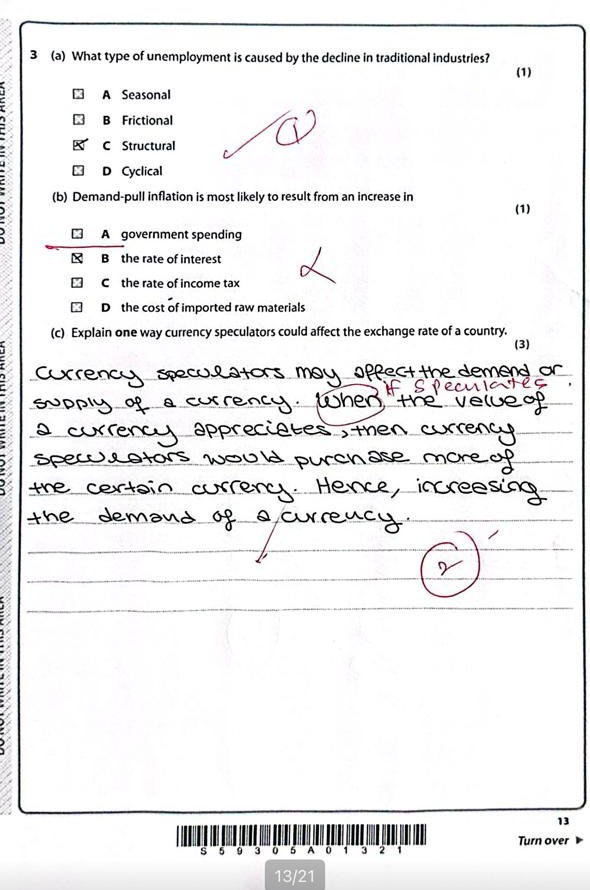 3 (a) What type of unemployment is caused by the decline in traditional industries?
(1)
A Seasonal
B Frictional
C Structural
1
D Cyclical
(b) Demand-pull inflation is most likely to result from an increase in
(1)
A government spending
B the rate of interest
C the rate of income tax
D the cost of imported raw materials
(c) Explain one way currency speculators could affect the exchange rate of a country.
(3)
Currency speculators may affect the demand or
if speculates
supply of a currency. When, the value of
a currency appreciates, then currency
speculators would purchase more of
the certain currency. Hence, increasing
the demand of a currency.
2
13
Turn over
S59305A01321
13/21